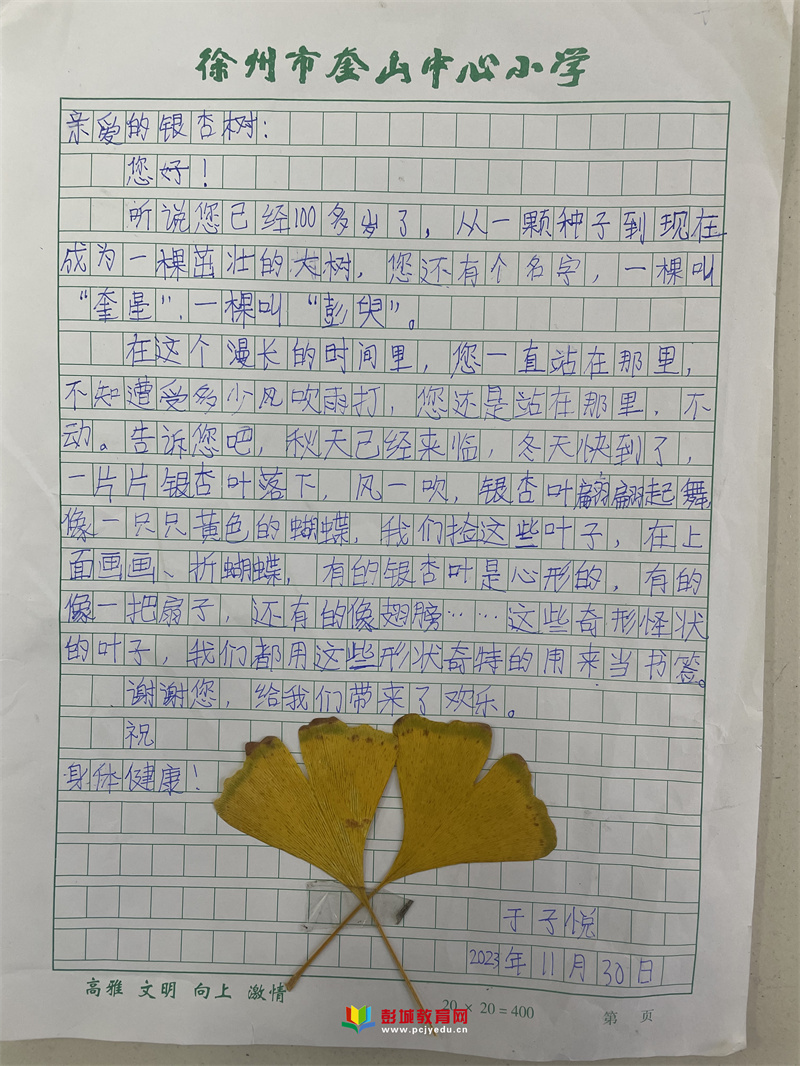 徐州市奎山中心小学
亲爱的银杏树：
您好！
听说您已经100多岁了，从一颗种子到现在
成为一棵茁壮的大树，您还有个名字，一棵叫
“奎星”，一棵叫“彭臾”。
在这个漫长的时间里，您一直站在那里，
不知遭受多少风吹雨打，您还是站在那里，不
动。告诉您吧，秋天已经来临，冬天快到了，
一片片银杏叶落下，风一吹，银杏叶翩翩起舞，
像一只只黄色的蝴蝶，我们捡这些叶子，在上
面画画、折蝴蝶，有的银杏叶是心形的，有的
像一把扇子，还有的像翅膀……这些奇形怪状
的叶子，我们都用这些形状奇特的用来当书签。
谢谢您，给我们带来了欢乐。
祝
身体健康！
于子悦
2023年11月30日
高雅 文明 向上 激情
20×20=400
第 页
彭城教育网
www.pcjyedu.cn